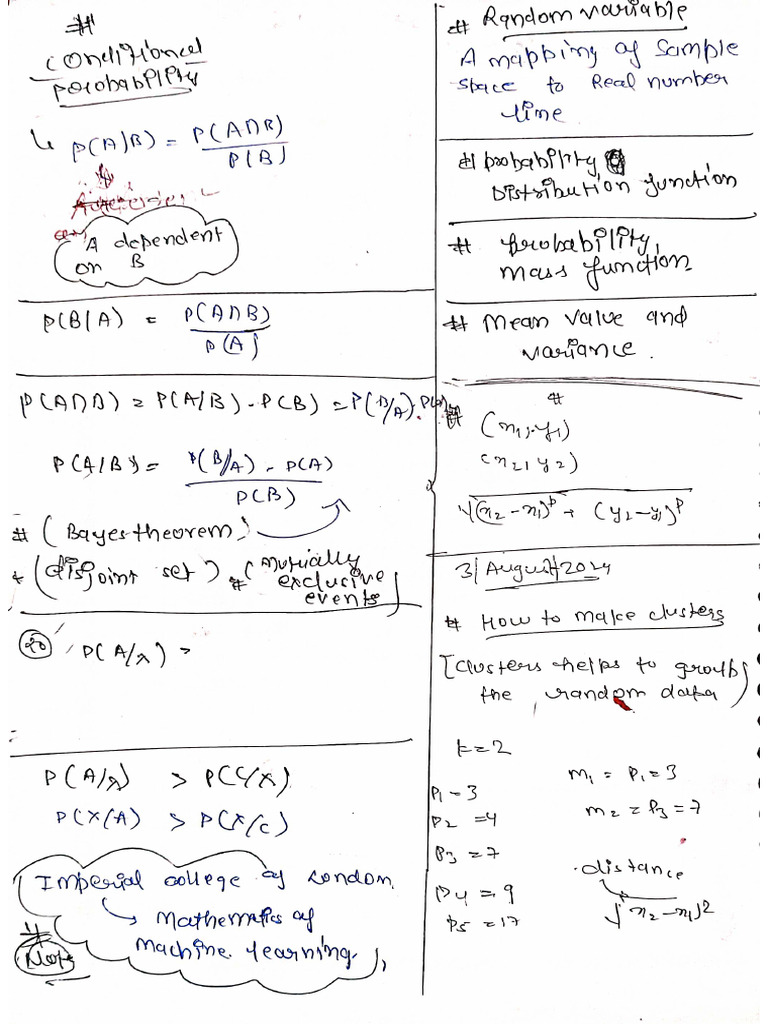 #
Conditional
probability
↳ P(A|B) = P(A∩B)
P(B)
A dependent
on B
P(B|A) = P(A∩B)
P(A)
P(A∩B) = P(A/B) . P(B) = P(B/A) .
P(A/B) = P(B/A) . P(A)
P(B)
# (Bayes theorem)
* (disjoint set) # (mutually
exclusive
events)
P(A/λ) =
P(A/λ) > P(C/X)
P(X/A) > P(X/C)
Imperial college of London
↳ Mathematics of
Machine learning.
#
Note
# Random variable
A mapping of sample
space to Real number
line
# probability
Distribution function
# probability
mass function
# Mean value and
variance.
# #
(x1, y1)
(x2, y2)
√(x2-x1)^p + (y2-y1)^p
31 August/2024
# How to make clusters
[clusters helps to group
the random data]
k=2
P1 - 3
P2 = 4
P3 = 7
P4 = 9
P5 = 17
m1 = P1 = 3
m2 = P3 = 7
distance
√(x2-x1)2